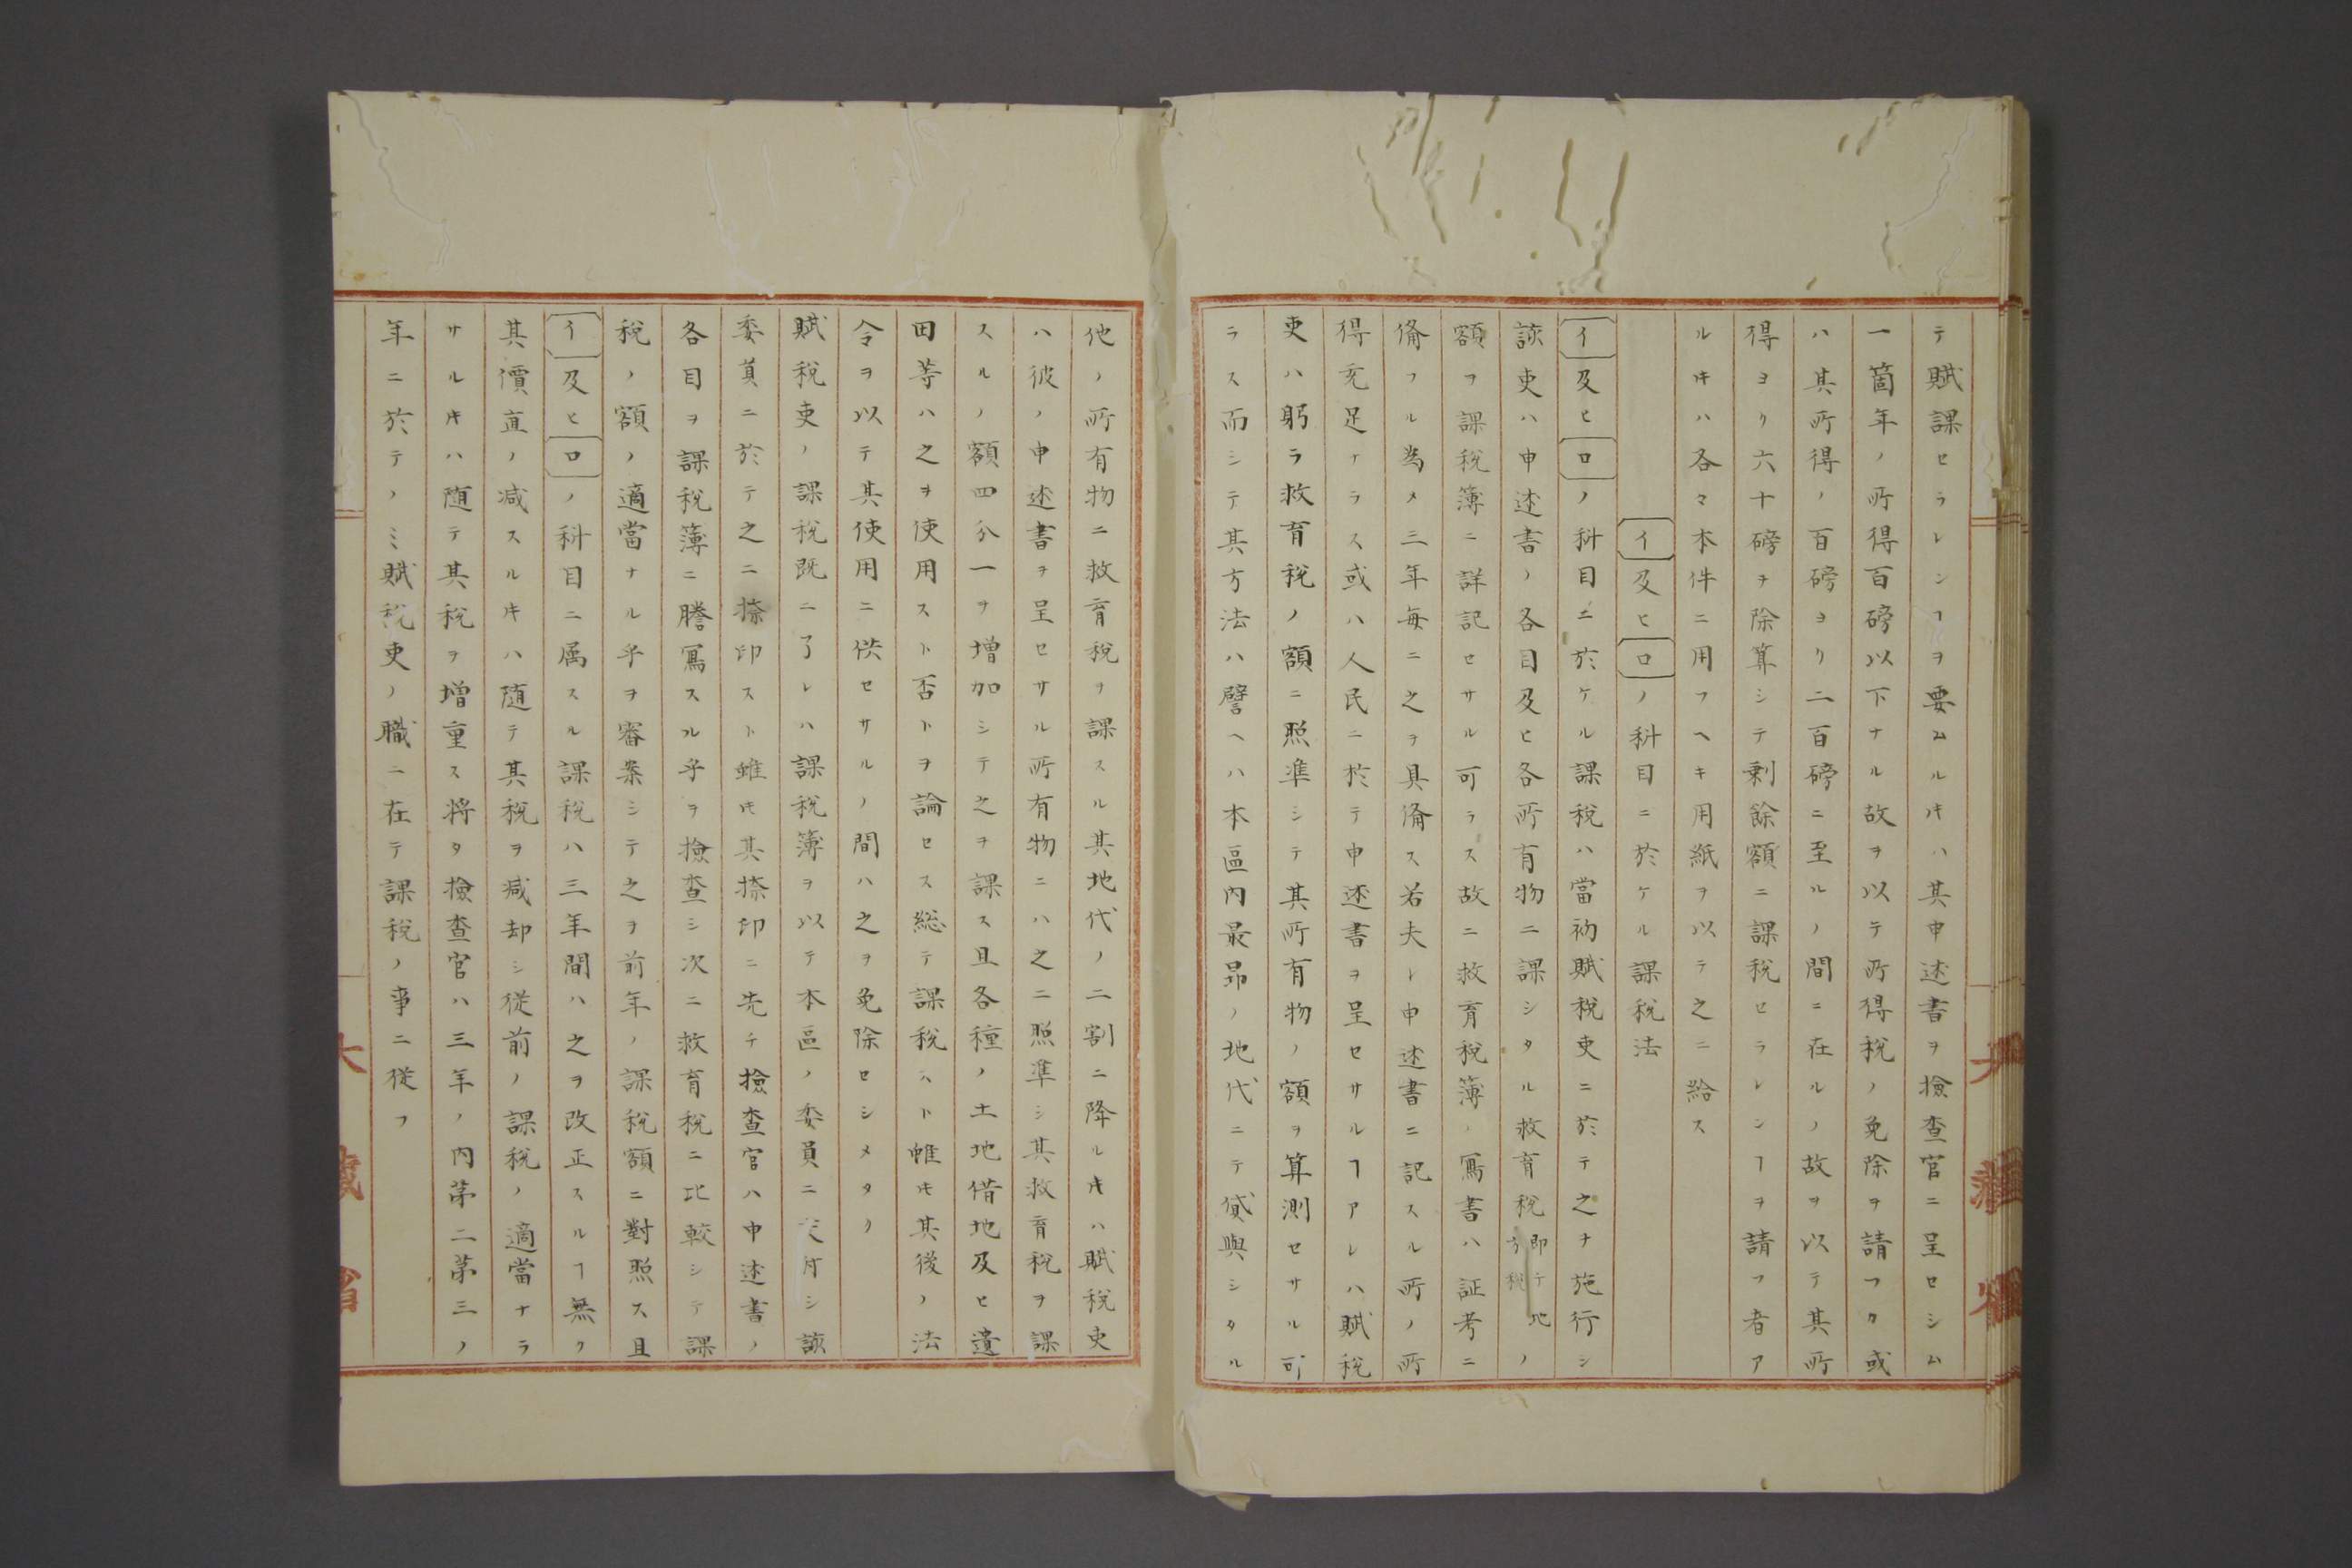 テ賦課セラレンヿヲ要ムルㇰキハ其申述書ヲ撿査官ニ呈セシム
一箇年ノ所得百磅以下ナル故ヲ以テ所得税ノ免除ヲ請フカ或
ハ其所得ノ百磅ヨリ二百磅ニ至ルノ間ニ在ルノ故ヲ以テ其所
得ヨリ六十磅ヲ除算シテ剰餘額ニ課税セラレンヿヲ請フ者ア
ルキハ各々本件ニ用フヘキ用紙ヲ以テ之ニ給ス
イ及ヒロノ科目ニ於ケル課税法
イ及ヒロノ科目ニ於ケル課税ハ當初賦税吏ニ於テ之ヲ施行シ
該吏ハ申述書ノ各目及ヒ各所有物ニ課シタル救育税即チ地方税ノ
額ヲ課税簿ニ詳記セサル可ラス故ニ救育税簿ノ寫書ハ証考ニ
備フル為メ三年毎ニ之ヲ具備ス若夫レ申述書ニ記スル所ノ所
得充足ケラス或ハ人民ニ於テ申述書ヲ呈セサルヿアレハ賦税
吏ハ躬ラ救育税ノ額ニ照準シテ其所有物ノ額ヲ算測セサル可
ラス而シテ其方法ハ譬ヘハ本區内最昂ノ地代ニテ貸與シタル
他ノ所有物ニ救育税ヲ課スル其地代ノ二割ニ降ルキハ賦税吏
ハ彼ノ申述書ヲ呈セサル所有物ニハ之ニ照準シ其救育税ヲ課
スルノ額四分一ヲ増加シテ之ヲ課ス且各種ノ土地借地及ヒ遺
田等ハ之ヲ使用スト否トヲ論セス総テ課税ハト雖𪜈其後ノ法
令ヲ以テ其使用ニ供セサルノ間ハ之ヲ免除セシメタリ
賦税吏ノ課税既ニ了レハ課税簿ヲ以テ本區ノ委員ニ交付シ該
委員ニ於テ之ニ捺印スト雖𪜈其捺印ニ先チ撿査官ハ申述書ノ
各目ヲ課税薄ニ謄寫スル乎ヲ撿査シ次ニ救育税ニ比較シテ課
税ノ額ノ適當ナル乎ヲ審案シテ之ヲ前年ノ課税額ニ對照ス且
イ及ヒロノ科目ニ属スル課税ハ三年間ハ之ヲ改正スルヿ無ク
其價直ノ减スルキハ随テ其税ヲ减却シ従前ノ課税ノ適當ナラ
サルキハ随テ其税ヲ増重ス将タ撿査官ハ三年ノ内苐二苐三ノ
年ニ於テノミ賦税吏ノ職ニ在テ課税ノ事ニ従フ
大藏省